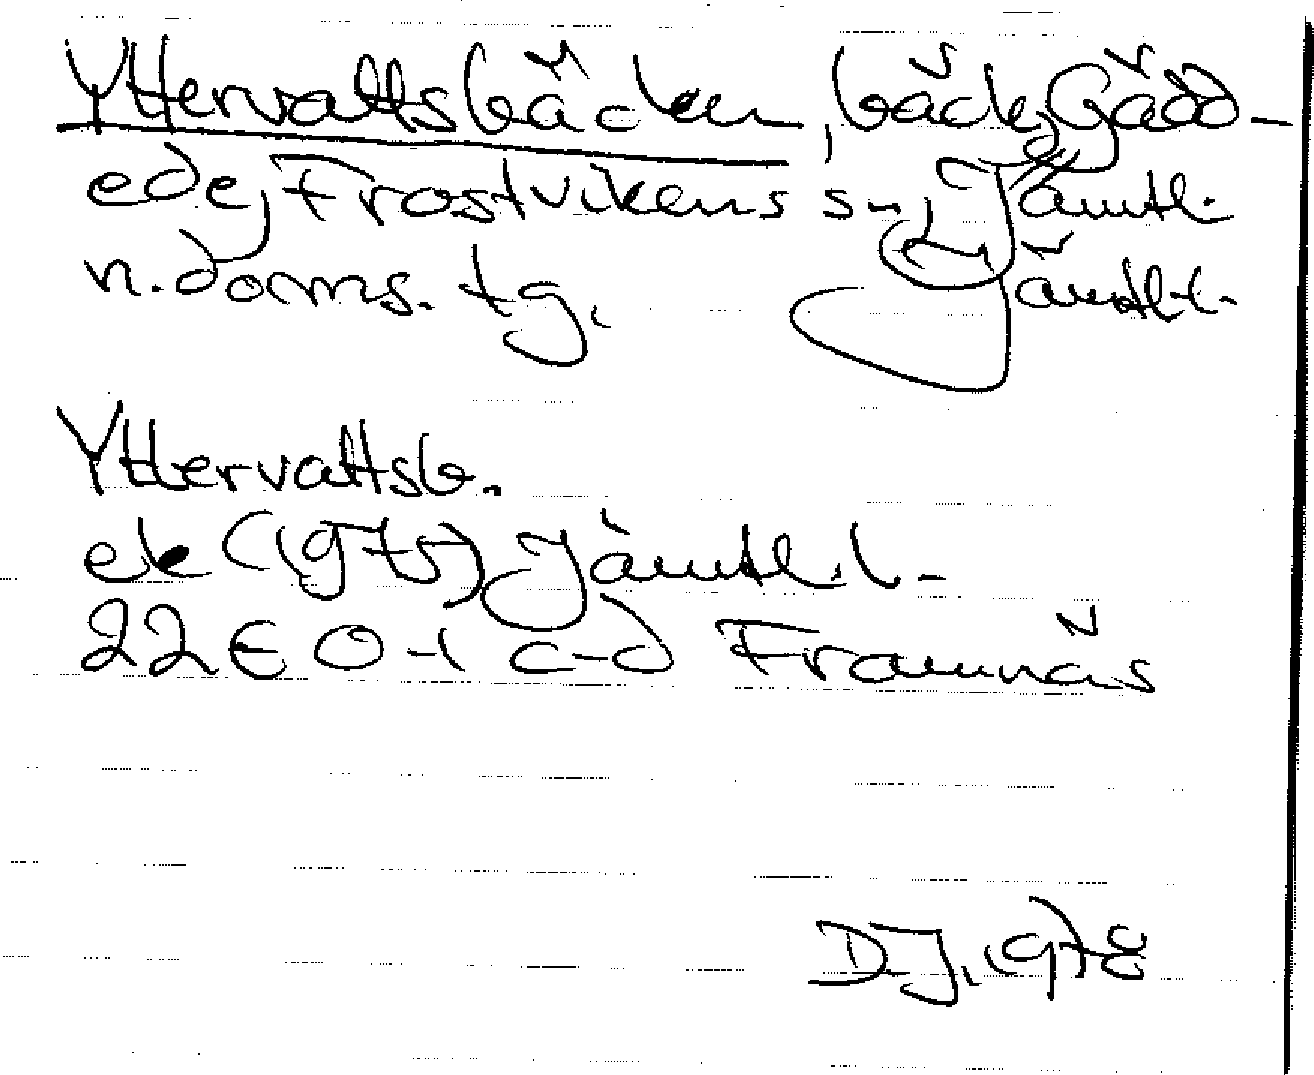 Yttervattsbäcken, bäck, Gädd-
ede, Frostvikens sn, Jämtl.
n. doms. tg, Jämtl.l.
Yttervattsb.
ek (1975) Jämtl.l.
22E 0-1 c-d Framnäs
D.J. 1978